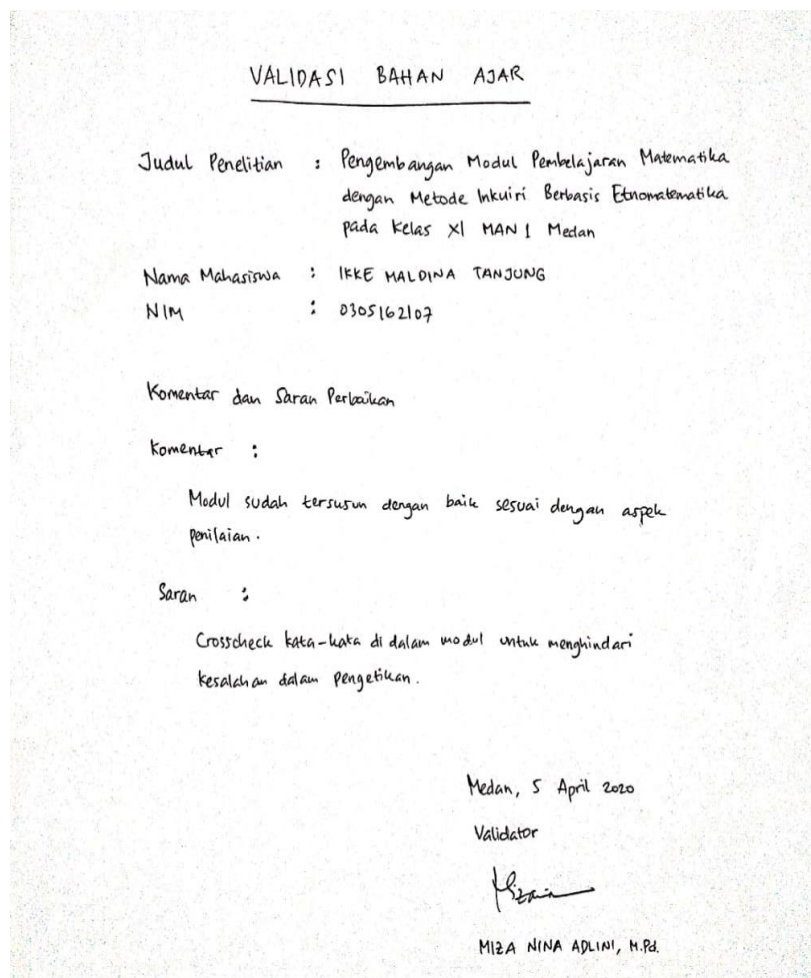 VALIDASI BAHAN AJAR
Judul Penelitian : Pengembangan Modul Pembelajaran Matematika
dengan Metode Inkuiri Berbasis Etnomatematika
pada Kelas XI MAN 1 Medan
Nama Mahasiswa : IKKE MALDINA TANJUNG
NIM : 0305162107
Komentar dan Saran Perbaikan
Komentar :
Modul sudah tersusun dengan baik sesuai dengan aspek
penilaian.
Saran :
Crosscheck kata-kata di dalam modul untuk menghindari
kesalahan dalam pengetikan.
Medan, 5 April 2020
Validator
MIZA NINA ADLINI, M.Pd.